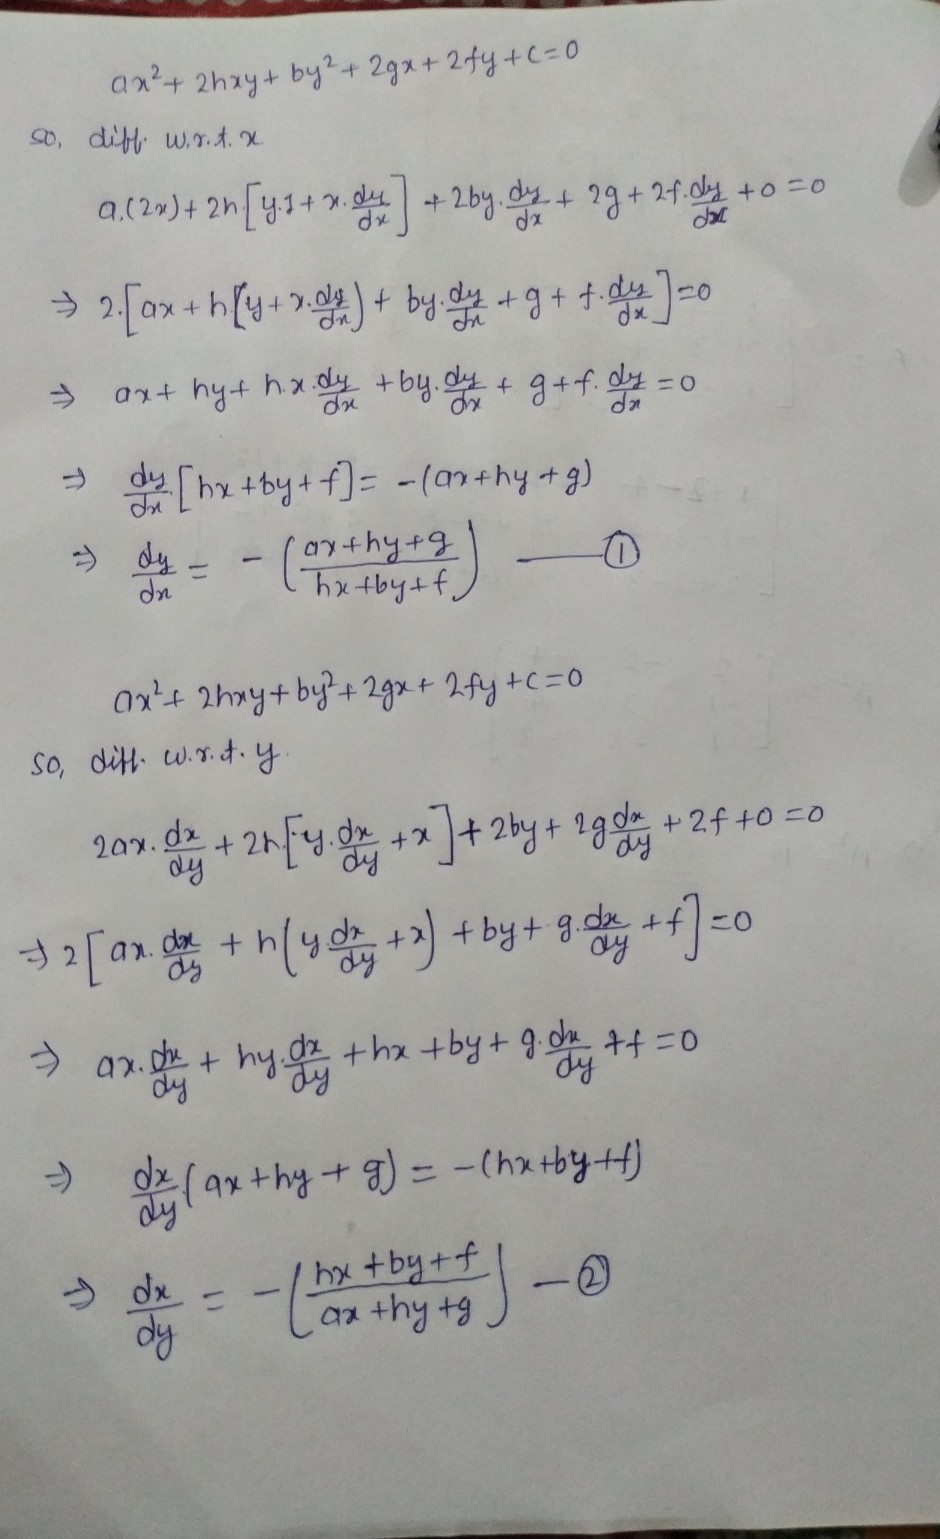 ax² + 2hxy + by² + 2gx + 2fy + c = 0
so, diff. w.r.t. x
a.(2x) + 2h[y.1 + x.dy/dx] + 2by.dy/dx + 2g + 2f.dy/dx + 0 = 0
⇒ 2.[ax + h(y + x.dy/dx) + by.dy/dx + g + f.dy/dx] = 0
⇒ ax + hy + h.x.dy/dx + by.dy/dx + g + f.dy/dx = 0
⇒ dy/dx[hx + by + f] = -(ax + hy + g)
⇒ dy/dx = -((ax + hy + g)/(hx + by + f)) — ①
ax² + 2hxy + by² + 2gx + 2fy + c = 0
so, diff. w.r.t. y.
2ax.dx/dy + 2h.[y.dx/dy + x] + 2by + 2g dx/dy + 2f + 0 = 0
⇒ 2[ax.dx/dy + h(y dx/dy + x) + by + g.dx/dy + f] = 0
⇒ ax.dx/dy + hy.dx/dy + hx + by + g.dx/dy + f = 0
⇒ dx/dy(ax + hy + g) = -(hx + by + f)
⇒ dx/dy = -((hx + by + f)/(ax + hy + g)) — ②